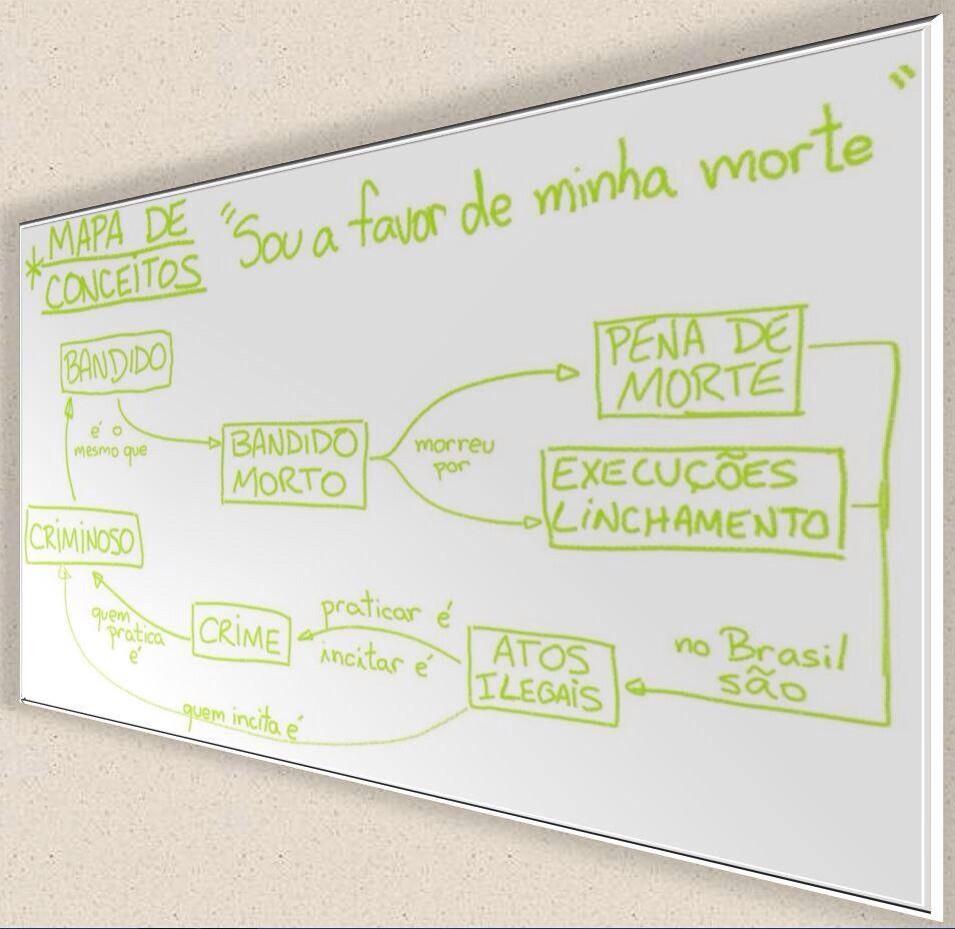 * MAPA DE
CONCEITOS
"Sou a favor de minha morte"
BANDIDO
é o
mesmo que
BANDIDO
MORTO
morreu
por
PENA DE
MORTE
EXECUÇÕES
LINCHAMENTO
no Brasil
são
ATOS
ILEGAIS
praticar é
incitar é
CRIME
quem
pratica
é
CRIMINOSO
quem incita é